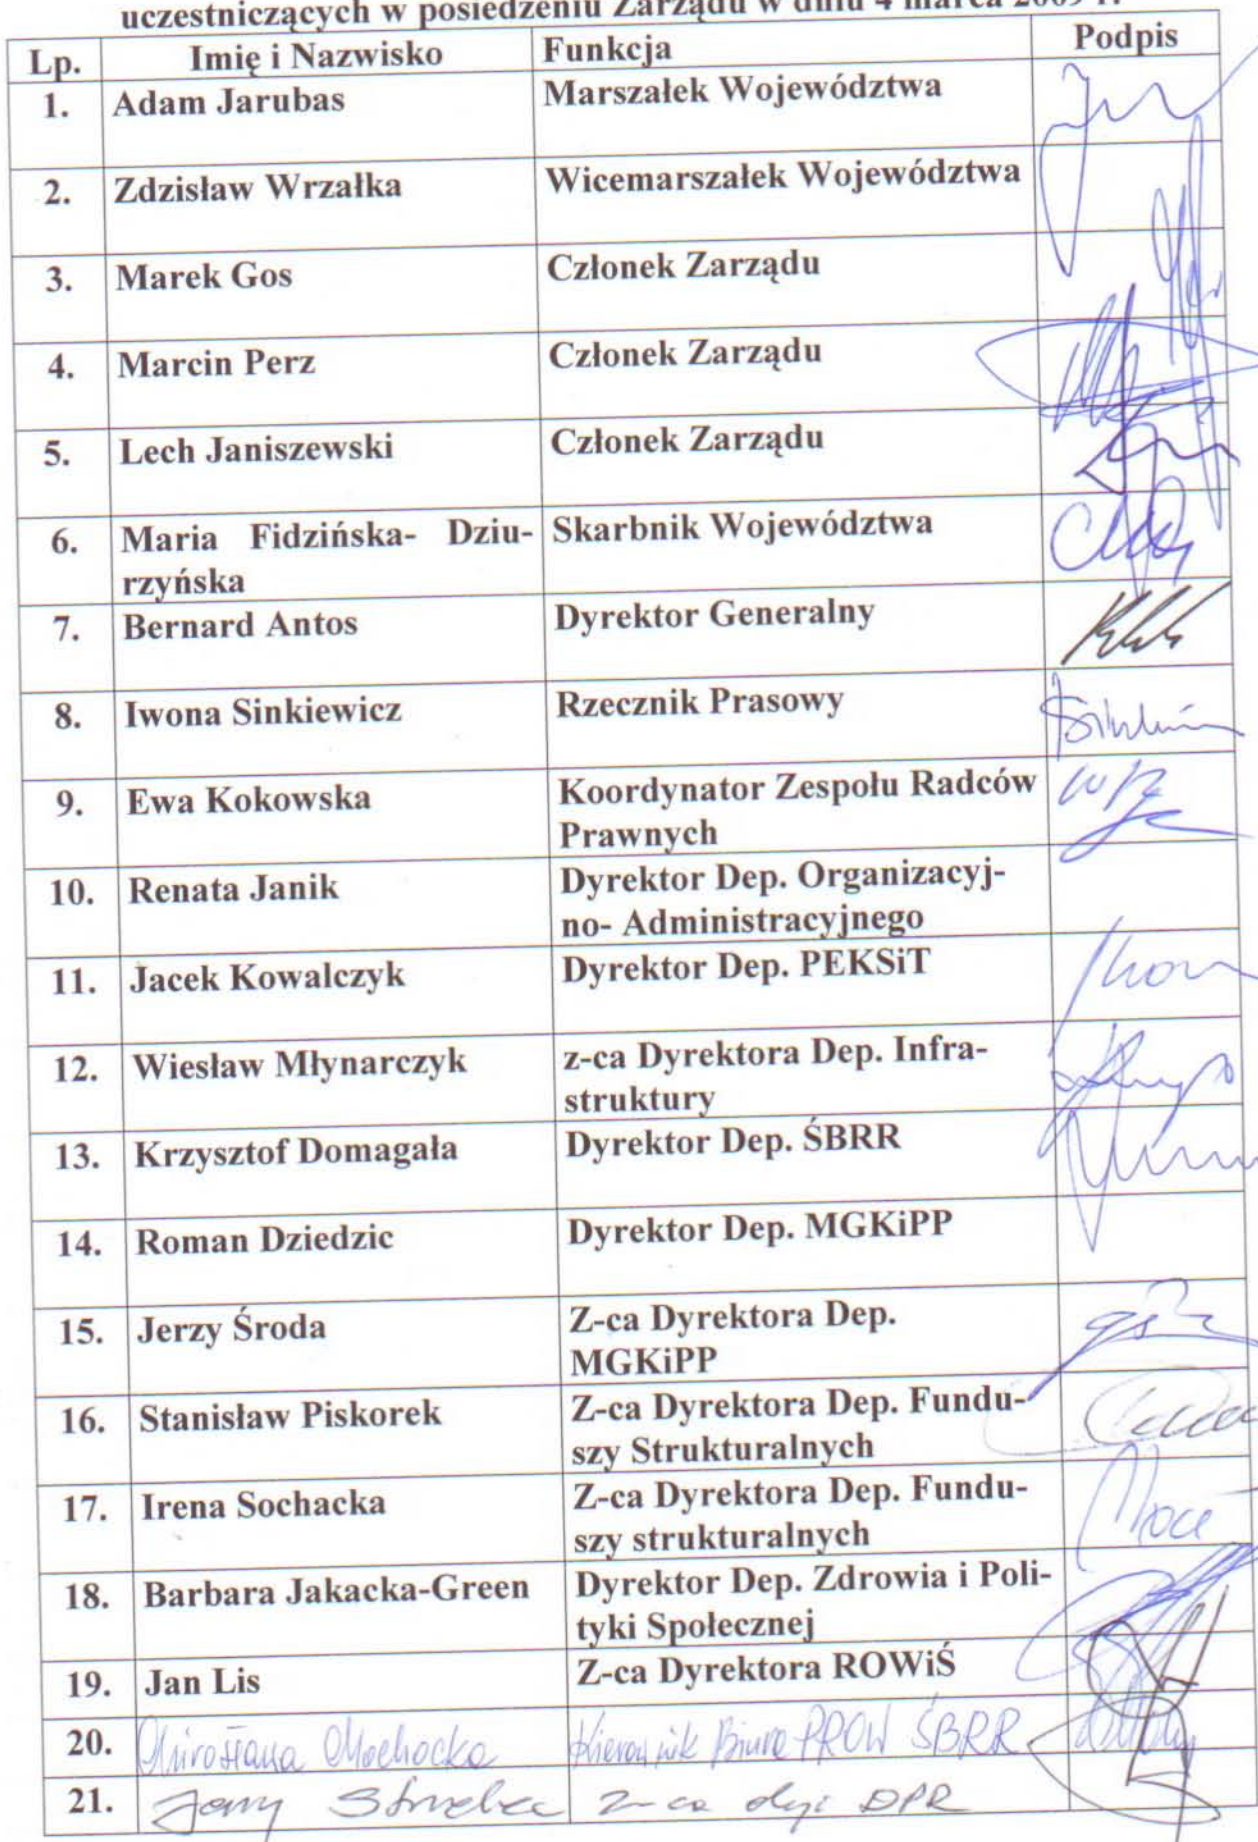 uczestniczących w posiedzeniu Zarządu w dniu 4 marca 2009 r.
Lp. Imię i Nazwisko Funkcja Podpis
1. Adam Jarubas Marszałek Województwa
2. Zdzisław Wrzałka Wicemarszałek Województwa
3. Marek Gos Członek Zarządu
4. Marcin Perz Członek Zarządu
5. Lech Janiszewski Członek Zarządu
6. Maria Fidzińska- Dziu- Skarbnik Województwa
rzyńska
7. Bernard Antos Dyrektor Generalny
8. Iwona Sinkiewicz Rzecznik Prasowy
9. Ewa Kokowska Koordynator Zespołu Radców
Prawnych
10. Renata Janik Dyrektor Dep. Organizacyj-
no- Administracyjnego
11. Jacek Kowalczyk Dyrektor Dep. PEKSiT
12. Wiesław Młynarczyk z-ca Dyrektora Dep. Infra-
struktury
13. Krzysztof Domagała Dyrektor Dep. ŚBRR
14. Roman Dziedzic Dyrektor Dep. MGKiPP
15. Jerzy Środa Z-ca Dyrektora Dep.
MGKiPP
16. Stanisław Piskorek Z-ca Dyrektora Dep. Fundu-
szy Strukturalnych
17. Irena Sochacka Z-ca Dyrektora Dep. Fundu-
szy strukturalnych
18. Barbara Jakacka-Green Dyrektor Dep. Zdrowia i Poli-
tyki Społecznej
19. Jan Lis Z-ca Dyrektora ROWiŚ
20. Mirosława Mochocka Kierownik Biura PROW ŚBRR
21. z-ca dyr DPR